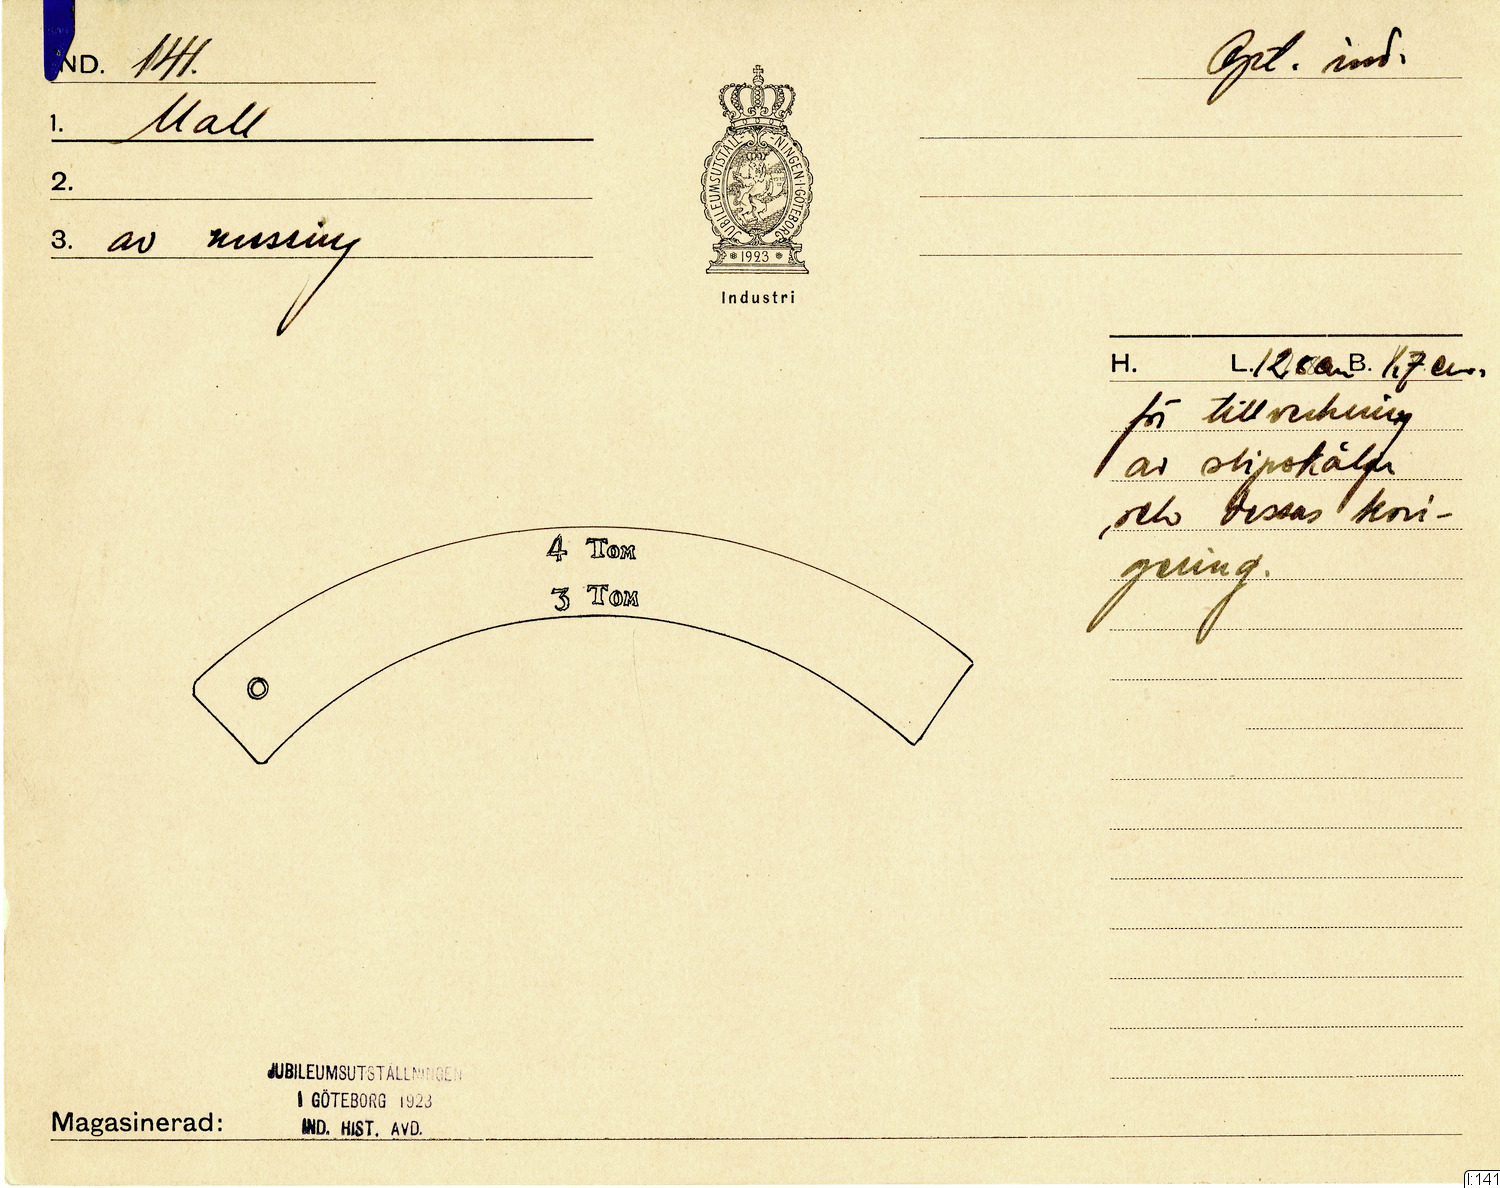 IND. 141.
Opt. ind.
1. Mall
2.
3. av mässing
JUBILEUMSUTSTÄLL-NINGEN·I·GÖTEBORG
1923
Industri
H. L. 12,8 cm B. 1,7 cm.
för tillverkning
av slipskålar
och dessas korri-
gering.
4 TOM
3 TOM
JUBILEUMSUTSTÄLLNINGEN
I GÖTEBORG 1923
Magasinerad: IND. HIST. AVD.
I:141